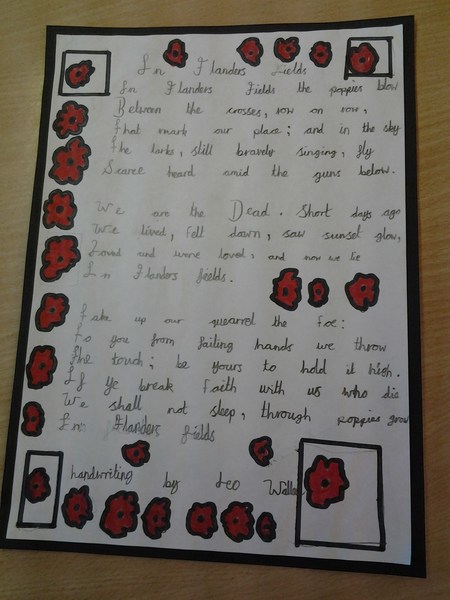 In Flanders Fields
In Flanders Fields the poppies blow
Between the crosses, row on row,
that mark our place; and in the sky
the larks, still bravely singing, fly
Scarce heard amid the guns below.
We are the Dead. Short days ago
We lived, felt dawn, saw sunset glow,
Loved and were loved, and now we lie
In Flanders feelds.
Take up our quearrel the foe:
To you from failing hands we throw
The touch; be yours to hold it high.
If Ye break Faith with us who die
We shall not sleep, through poppies grow
In Flanders fields
handwriting by Leo